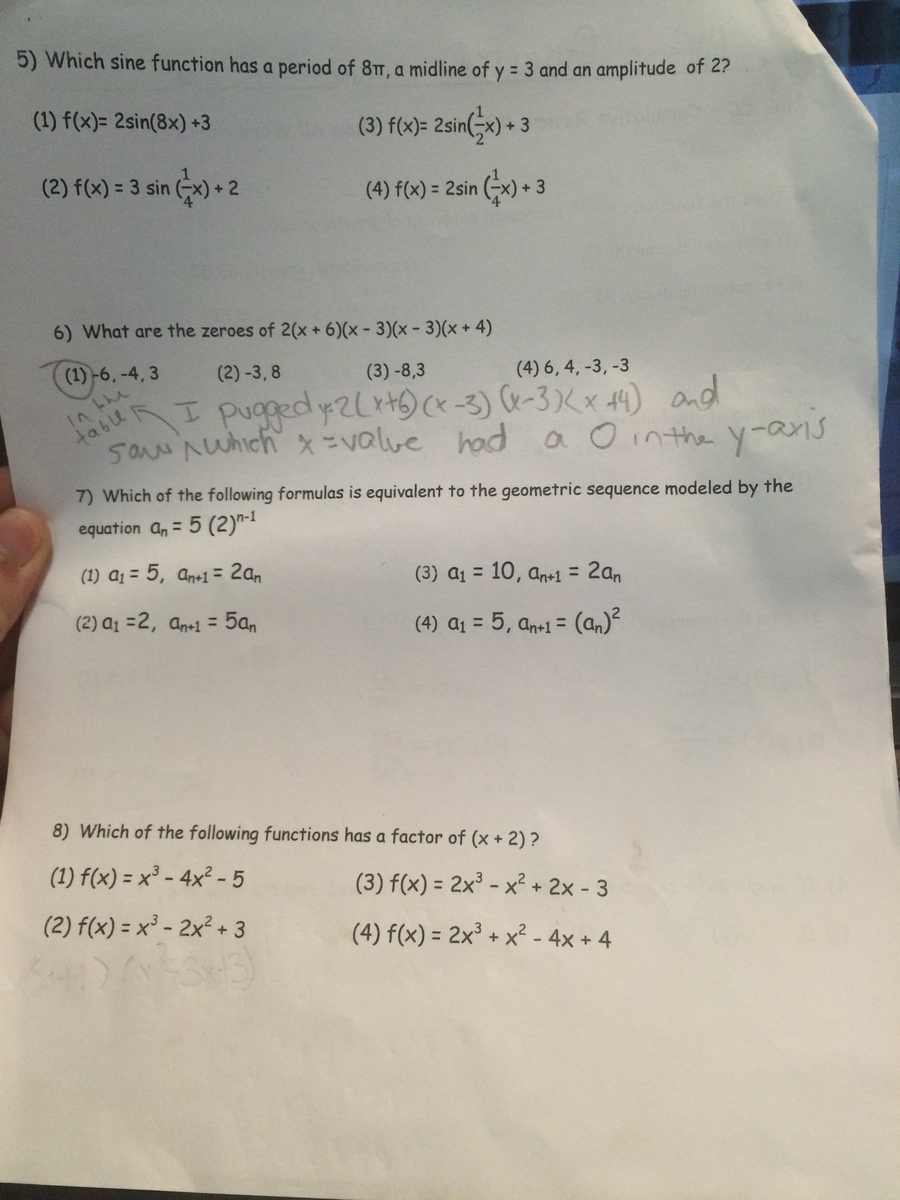 5) Which sine function has a period of 8π, a midline of y = 3 and an amplitude of 2?
(1) f(x)= 2sin(8x) +3
(3) f(x)= 2sin(1/2x) + 3
(2) f(x) = 3 sin (1/4x) + 2
(4) f(x) = 2sin (1/4x) + 3
6) What are the zeroes of 2(x + 6)(x - 3)(x - 3)(x + 4)
(1) -6, -4, 3
(2) -3, 8
(3) -8,3
(4) 6, 4, -3, -3
in the
table
I pugged y=2(x+6)(x-3)(x-3)(x+4) and
saw which x=value had a 0 in the y-axis
7) Which of the following formulas is equivalent to the geometric sequence modeled by the
equation aₙ = 5 (2)ⁿ⁻¹
(1) a₁ = 5, aₙ₊₁ = 2aₙ
(3) a₁ = 10, aₙ₊₁ = 2aₙ
(2) a₁ =2, aₙ₊₁ = 5aₙ
(4) a₁ = 5, aₙ₊₁ = (aₙ)²
8) Which of the following functions has a factor of (x + 2) ?
(1) f(x) = x³ - 4x² - 5
(3) f(x) = 2x³ - x² + 2x - 3
(2) f(x) = x³ - 2x² + 3
(4) f(x) = 2x³ + x² - 4x + 4
(x+1) (x²-3x+3)